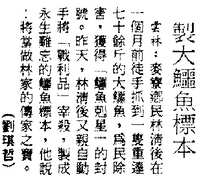 製大鱷魚標本
雲林:麥寮鄉民林清後在
一個月前徒手抓到一隻重達
七十餘斤的大鱷魚,為民除
害,獲得「鱷魚剋星」的封
號。昨天,林清後又親自動
手將「戰利品」宰殺,製成
永生難忘的鱷魚標本,他說
,將當做林家的傳家之寶。
(劉琪哲)